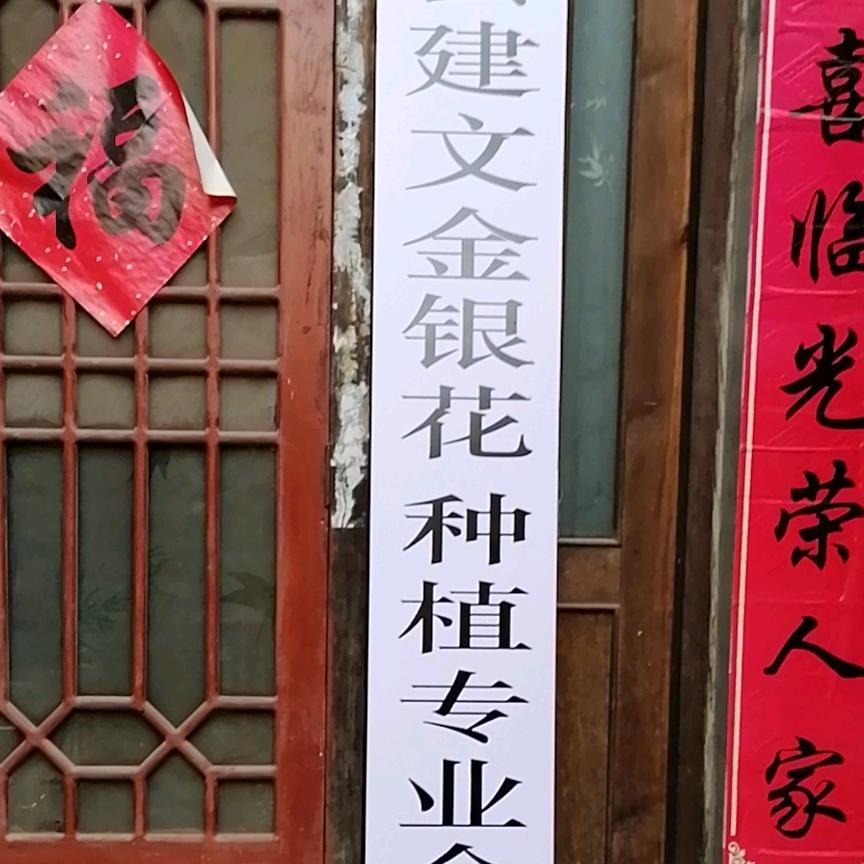 福
建文金银花种植专业
喜临光荣人家